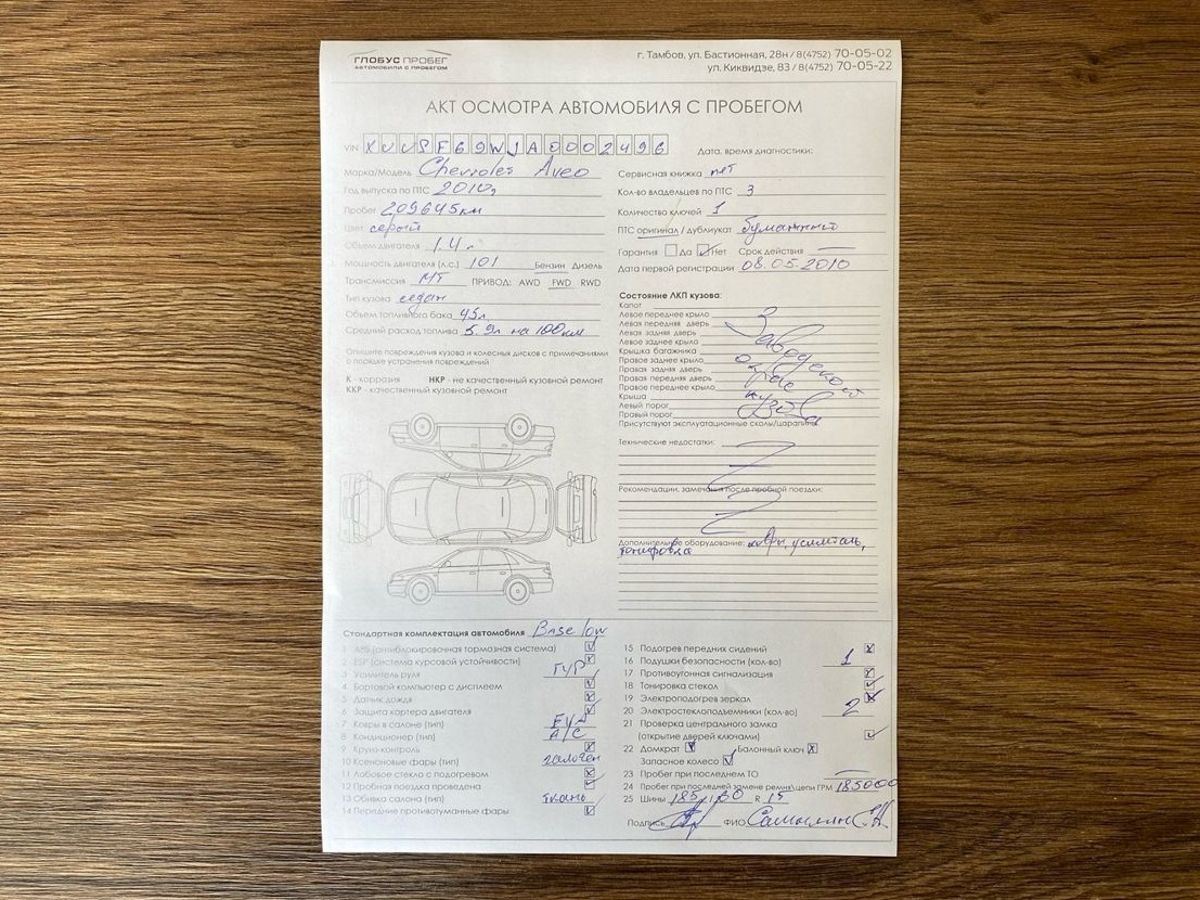 ГЛОБУС ПРОБЕГ
АВТОМОБИЛИ С ПРОБЕГОМ
г. Тамбов, ул. Бастионная, 28н / 8(4752) 70-05-02
ул. Киквидзе, 83 / 8(4752) 70-05-22
АКТ ОСМОТРА АВТОМОБИЛЯ С ПРОБЕГОМ
VIN XUUSF69WJA0002496
Дата, время диагностики:
Марка/Модель Chevrolet Aveo
Год выпуска по ПТС 2010г
Пробег 209645км
Цвет серый
Объем двигателя 1.4 л
Мощность двигателя (л.с.) 101 Бензин Дизель
Трансмиссия МТ ПРИВОД: AWD FWD RWD
Тип кузова седан
Объем топливного бака 45л
Средний расход топлива 5.9л на 100км
Опишите повреждения кузова и колесных дисков с примечаниями
о порядке устранения повреждений
К - коррозия НКР - не качественный кузовной ремонт
ККР - качественный кузовной ремонт
Сервисная книжка нет
Кол-во владельцев по ПТС 3
Количество ключей 1
ПТС оригинал / дубликат бумажный
Гарантия Да Нет Срок действия —
Дата первой регистрации 08.05.2010
Состояние ЛКП кузова:
Капот
Левое переднее крыло
Левая передняя дверь
Левая задняя дверь
Левое заднее крыло
Крышка багажника
Правое заднее крыло
Правая задняя дверь
Правая передняя дверь
Правое переднее крыло
Крыша
Левый порог
Правый порог
Заводской
окрас
кузова
Присутствуют эксплуатационные сколы/царапины
Технические недостатки:
Рекомендации, замечания после пробной поездки:
Дополнительное оборудование: ковры, усилитель,
тонировка
Стандартная комплектация автомобиля Base low
1 ABS (антиблокировочная тормозная система)
2 ESP (система курсовой устойчивости)
3 Усилитель руля ГУР
4 Бортовой компьютер с дисплеем
5 Датчик дождя
6 Защита картера двигателя
7 Ковры в салоне (тип)
8 Кондиционер (тип) A/C
9 Круиз-контроль
10 Ксеноновые фары (тип) галоген
11 Лобовое стекло с подогревом
12 Пробная поездка проведена
13 Обивка салона (тип) ткань
14 Передние противотуманные фары
15 Подогрев передних сидений
16 Подушки безопасности (кол-во) 1
17 Противоугонная сигнализация
18 Тонировка стекол
19 Электроподогрев зеркал
20 Электростеклоподъемники (кол-во) 2
21 Проверка центрального замка
(открытие дверей ключами)
22 Домкрат Балонный ключ
Запасное колесо
23 Пробег при последнем ТО —
24 Пробег при последней замене ремня\цепи ГРМ 185000
25 Шины 185 / 60 R 15
Подпись ФИО